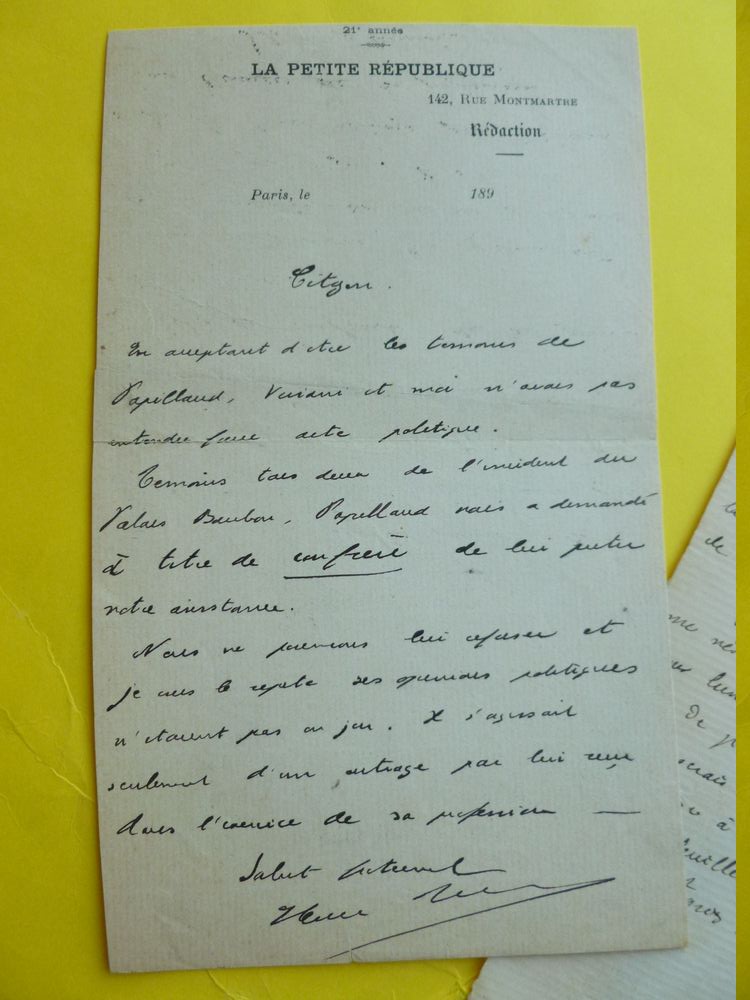 21e année
LA PETITE RÉPUBLIQUE
142, Rue Montmartre
Rédaction
Paris, le 189
Citoyen.
En acceptant d'être les témoins de
Papillaud, Viviani et moi n'avons pas
entendu faire acte politique.
Témoins tous deux de l'incident du
Palais Bourbon, Papillaud nous a demandé
à titre de confrère de lui prêter
notre assistance.
Nous ne pouvions lui refuser et
je vous le répète ses opinions politiques
n'étaient pas en jeu. Il s'agissait
seulement d'un outrage par lui reçu
dans l'exercice de sa profession —
Salut fraternel
de
à